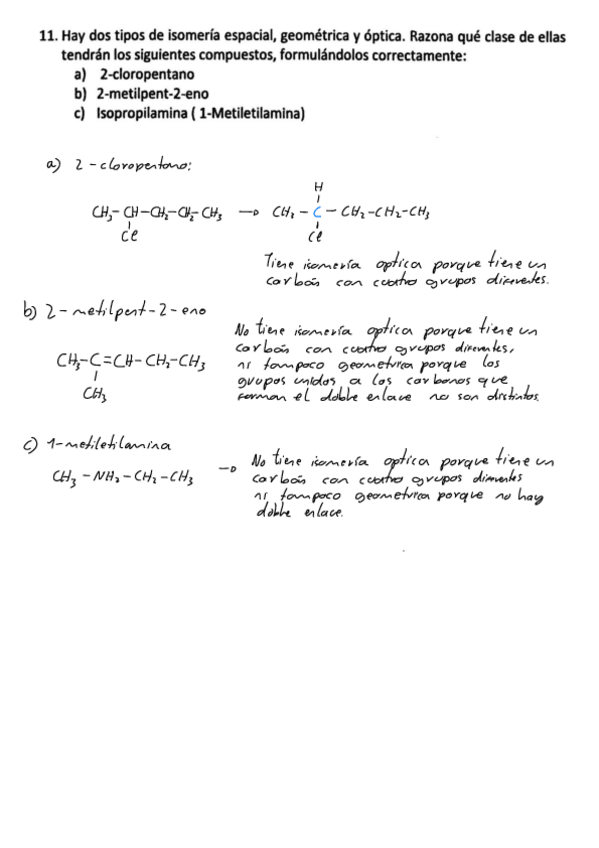 11. Hay dos tipos de isomería espacial, geométrica y óptica. Razona qué clase de ellas
tendrán los siguientes compuestos, formulándolos correctamente:
a) 2-cloropentano
b) 2-metilpent-2-eno
c) Isopropilamina ( 1-Metiletilamina)
a) 2-cloropentano:
H
CH₃-CH-CH₂-CH₂-CH₃ → CH₃-C-CH₂-CH₂-CH₃
Cl Cl
Tiene isomería optica porque tiene un
carbón con cuatro grupos diferentes.
b) 2-metilpent-2-eno
No tiene isomería optica porque tiene un
carbón con cuatro grupos diferentes,
CH₃-C=CH-CH₂-CH₃
ni tampoco geometrica porque los
grupos unidos a los carbonos que
CH₃
forman el doble enlace no son distintos.
c) 1-metiletilamina
CH₃-NH₂-CH₂-CH₃ →
No tiene isomería optica porque tiene un
carbón con cuatro grupos diferentes
ni tampoco geometrica porque no hay
doble enlace.